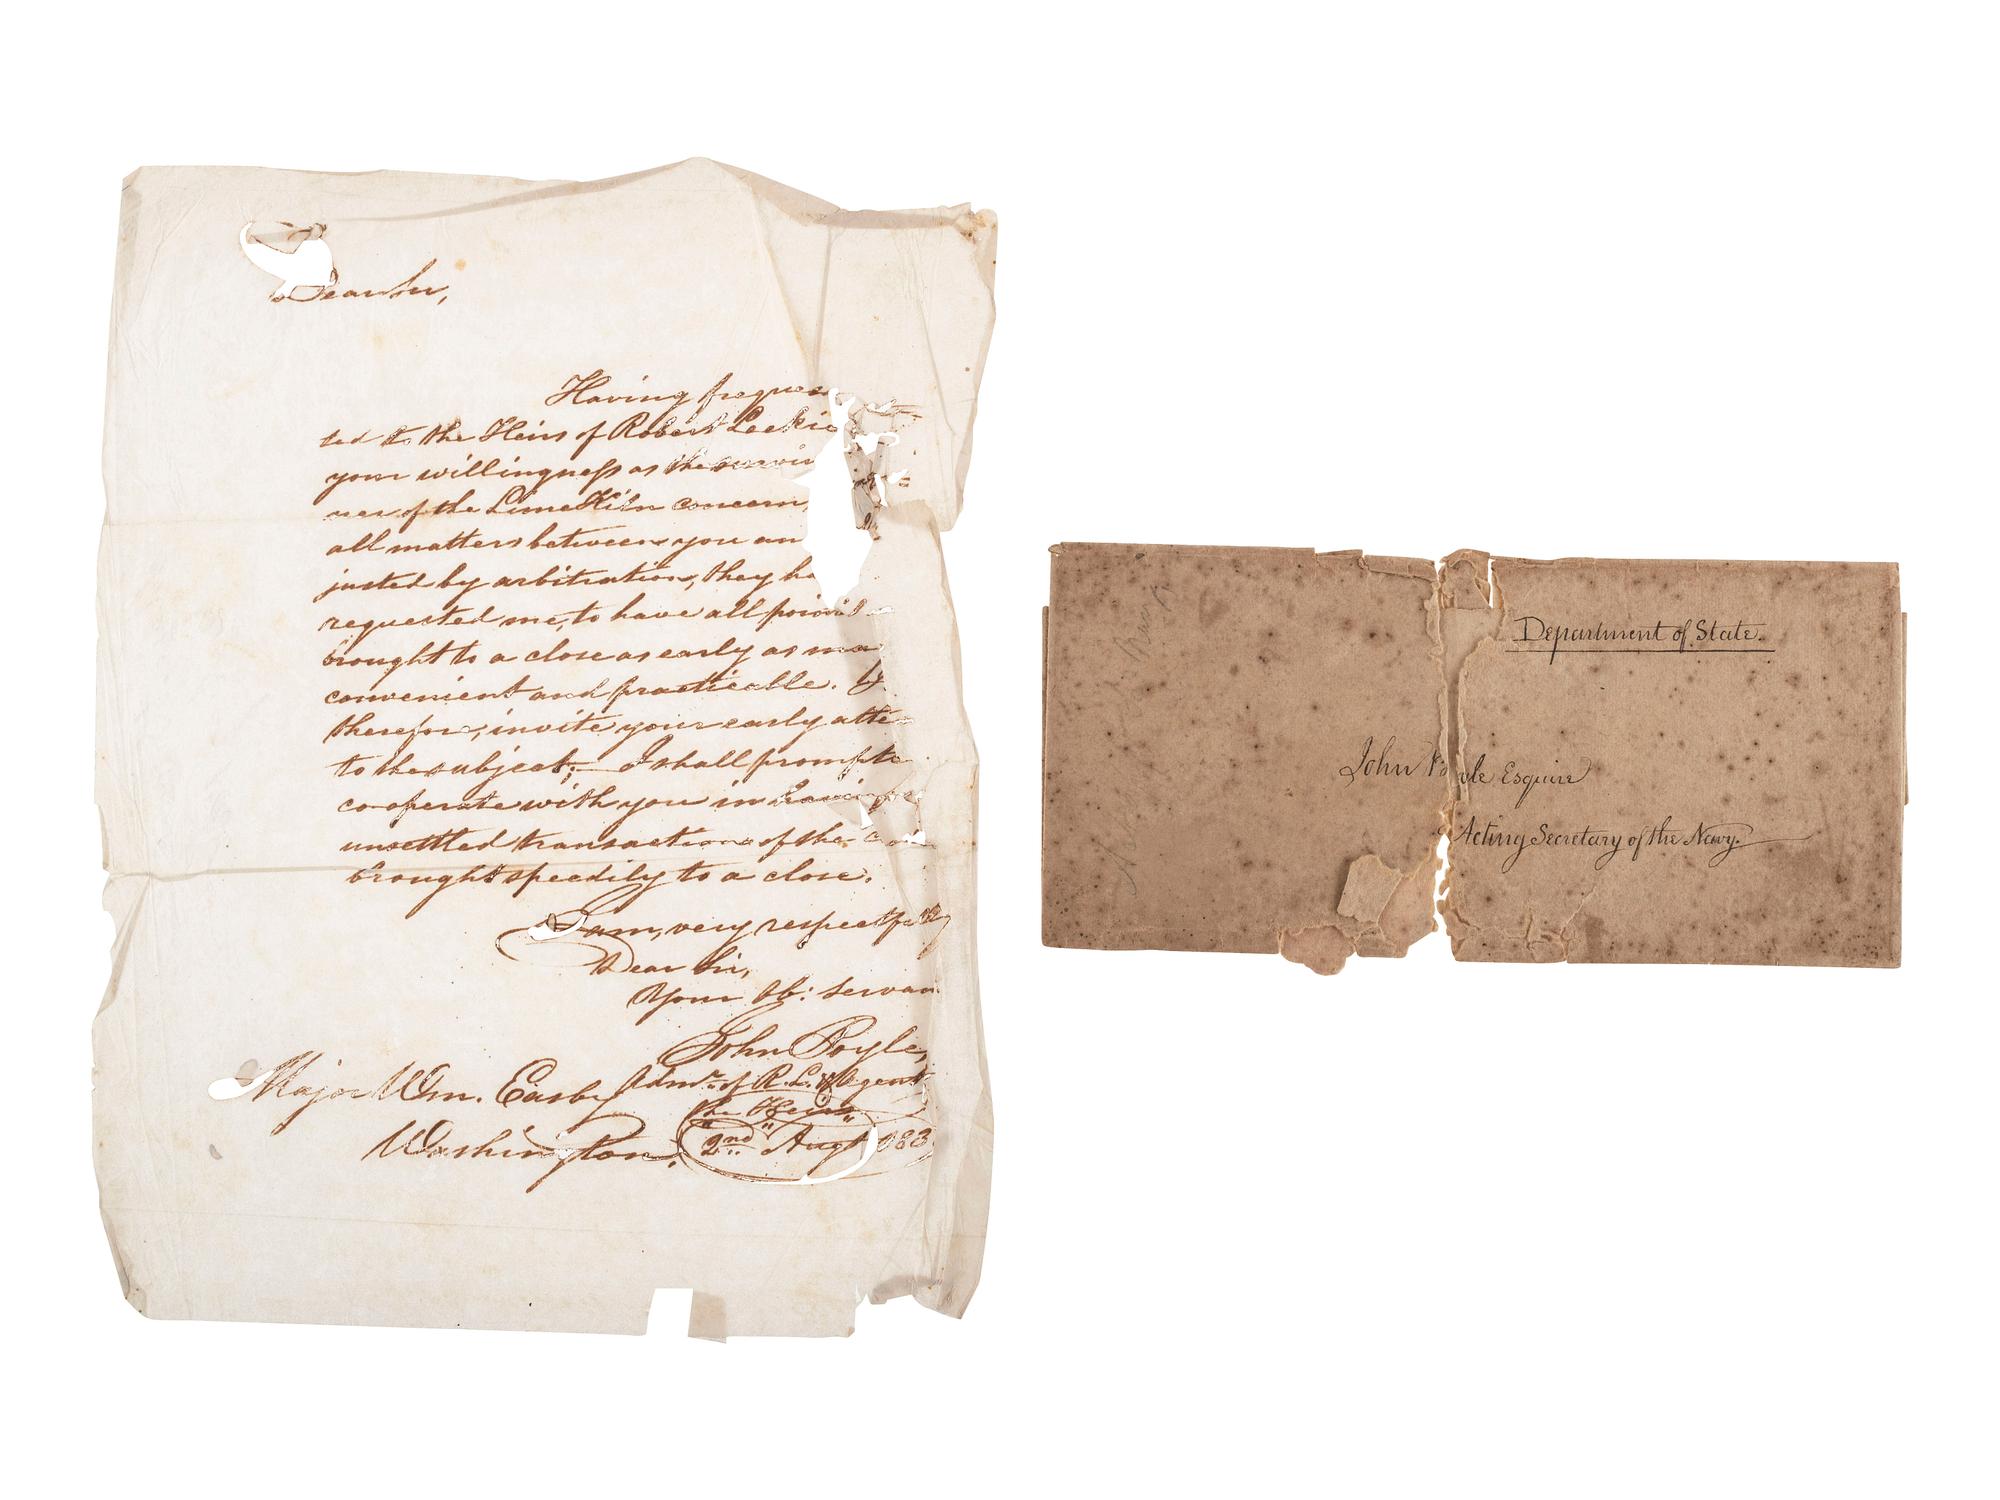 Dear Sir,
Having freques
ted to the Heirs of Robert Leckie
your willingness as the survi
ver of the Lime Kiln concern,
all matters between you an
justed by arbitration, they ha
requested me, to have all
brought to a close as early as ma
convenient and practicable. I
therefore, invite your early atte
to the subject; — I shall prompt
co-operate with you in having
unsettled transactions of the
brought speedily to a close.
I am, very respectfully
Dear Sir,
Your Ob: Servan
John Boyle,
Major Wm. Easby Admr. of R. L. & Agent
the Heirs
Washington. 2nd Augt 183
Department of State.
John Boyle Esquire
Acting Secretary of the Navy.